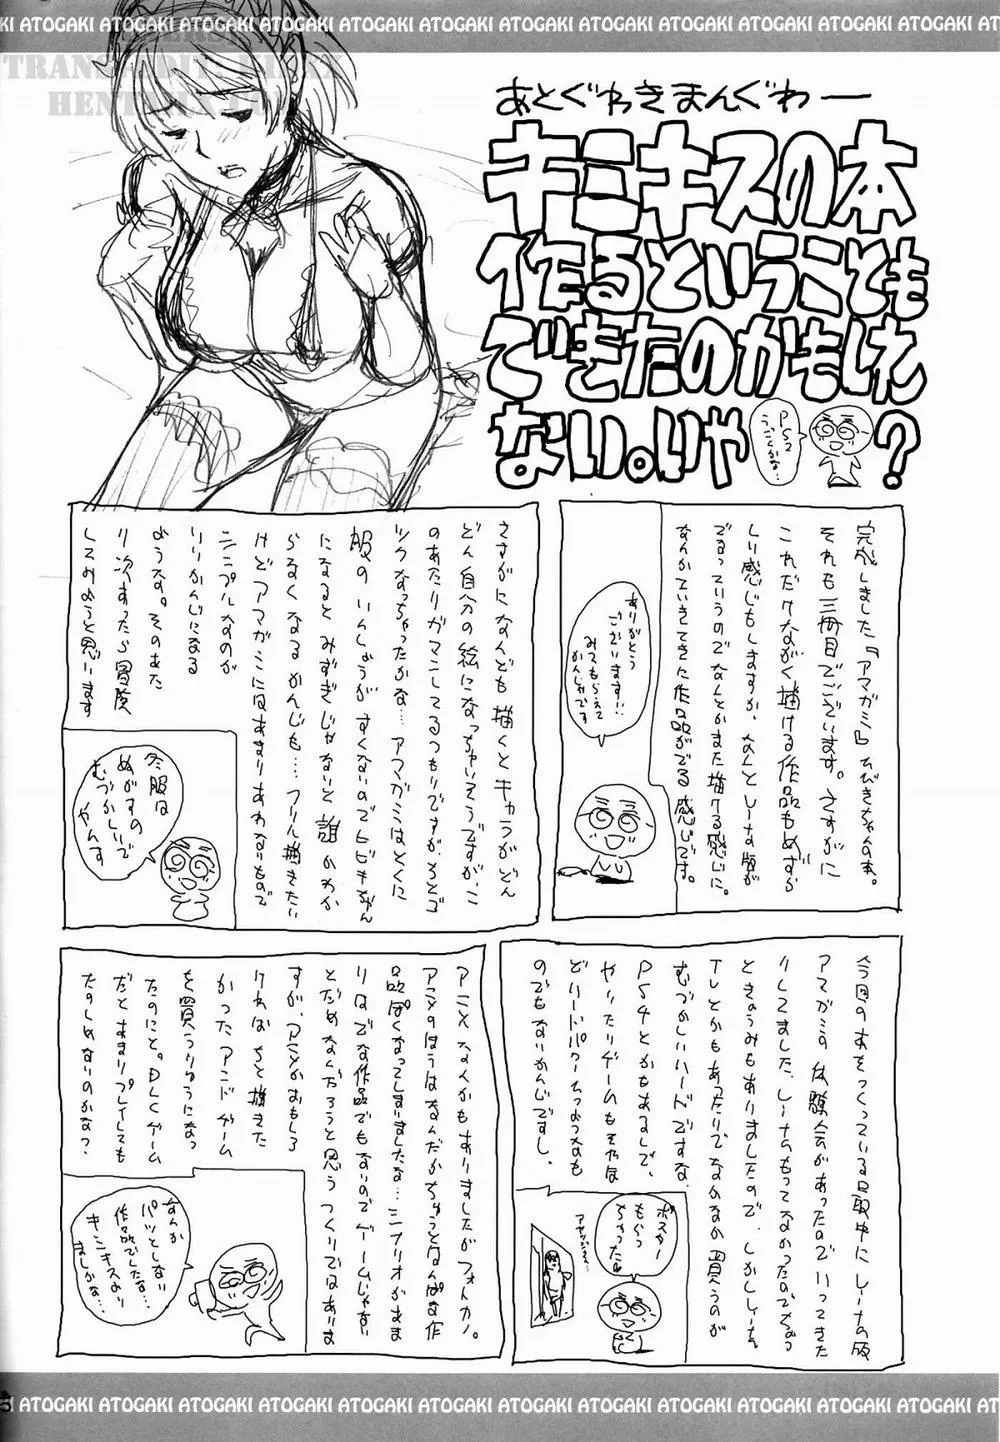 ATOGAKI ATOGAKI ATOGAKI ATOGAKI ATOGAKI ATOGAKI ATOGAKI ATOGAKI ATOGAKI
あとぐゎきまんぐゎー
キミキスの本
作るということも
できたのかもしれ
ない。いや
?
PS2
うごくかな…
完成しました『アマガミ』ひびきちゃん本。
それも三冊目でございます。さすがに
これだけながく描ける作品もめずら
しい感じもしますが、なんとしーな版が
でるっていうのでなんとかまた描ける感じに。
なんかていきてきに作品がでる感じです。
ありがとう
ございます!!
みてもらえて
かんしゃです
さすがになんども描くとキャラがどん
どん自分の絵になっちゃいそうですが、こ
のあたりガマンしてるつもりですが、そとで
ツクなっちゃったかな…アマガミはとくに
服のいしょうがすくないのでヒビキちゃん
になるとみずぎじゃないと誰かわか
らなくなるかんじも…フリル描きたい
けどアマガミにはあまりあわないもので
シンプルなのが
いいかんじになる
ような。そのあた
り次あったら冒険
してみようと思います
冬服は
ぬがすの
むづかしいで
やんす
今回の本をつくっている最中にしーなの版
アマガミの体験会があったのでいってきた
りしてました。しーなもってなかったのでちょっ
ときょうみもありましたので。しかししーな
TVとかもあったりでなかなか買うのが
むづかしいハードですな。
PS4とかもあるしで、
やりたいゲームもそやは
どりードパクームっょつなも
のでもないかんじですし、
ポスター
もらっ
ちゃった
アヤツジさん
アニメなんかもありましたがフォトカノ。
アニメのほうはなんだかちょっとはんぱな作
品ぽくなってしまいましたな…シナリオがあま
りはでな作品でもないのでゲームじゃない
とだめなんだろうと思うつくりではありま
すが、アニメがおもしろ
ければもちっと描きた
かったアンドゲーム
を買うりゆうになっ
たのにと。DLCゲーム
だとあまりプレイしても
たのしめないのかな?
なんか
パッとしない
作品でしたな…
キミキスより
ましかな…
ATOGAKI ATOGAKI ATOGAKI ATOGAKI ATOGAKI ATOGAKI ATOGAKI ATOGAKI ATOGAKI